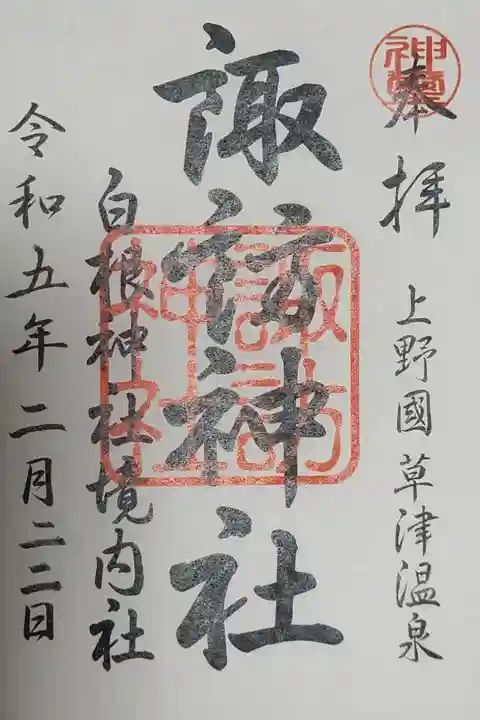 奉拝
上野國草津温泉
諏訪神社
諏訪神社
白根神社境内社
令和五年二月二二日